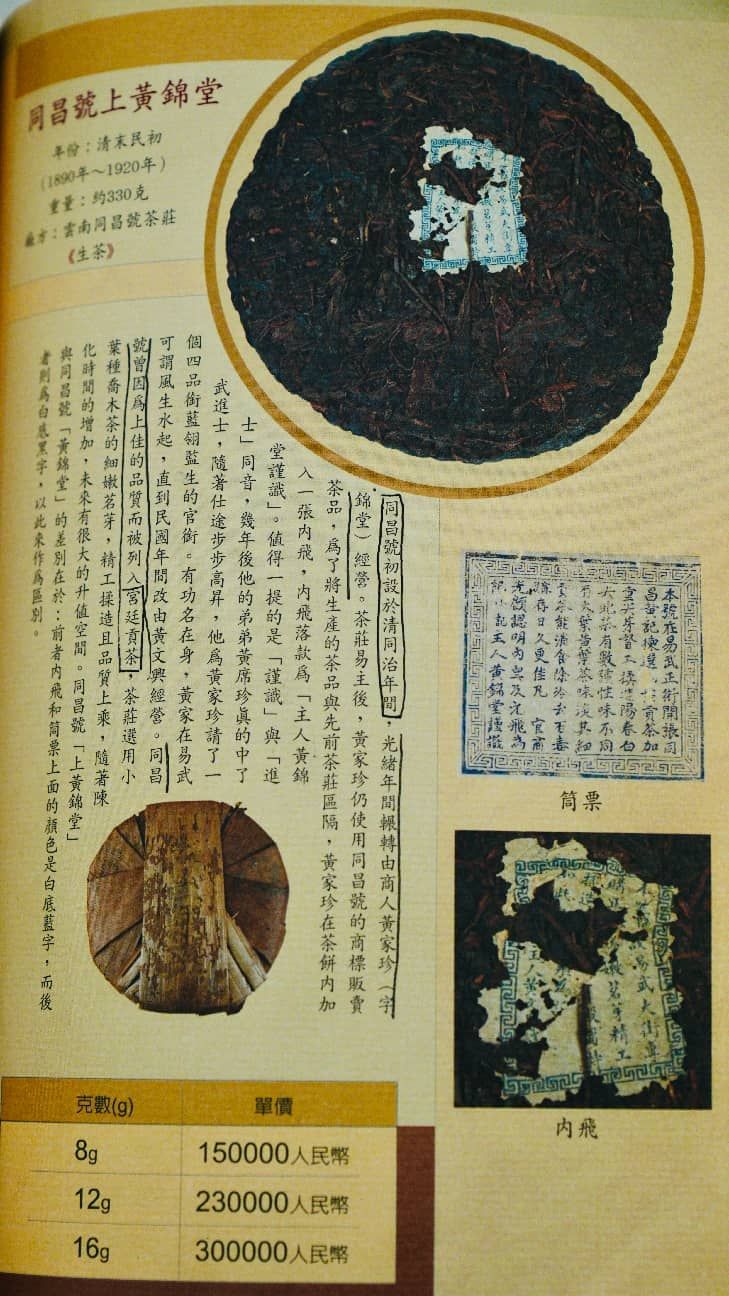 同昌號上黃錦堂
年份：清末民初
(1890年～1920年)
重量：約330克
廠方：雲南同昌號茶莊
《生茶》
同昌號初設於清同治年間，光緒年間輾轉由商人黃家珍（字
錦堂）經營。茶莊易主後，黃家珍仍使用同昌號的商標販賣
茶品，為了將生產的茶品與先前茶莊區隔，黃家珍在茶餅內加
入一張內飛，內飛落款為「主人黃錦
堂謹識」。值得一提的是「謹識」與「進
士」同音，幾年後他的弟弟黃席珍真的中了
武進士，隨著仕途步步高昇，他為黃家珍請了一
個四品銜藍翎監生的官銜。有功名在身，黃家在易武
可謂風生水起，直到民國年間改由黃文興經營。同昌
號曾因為上佳的品質而被列入宮廷貢茶，茶莊選用小
葉種喬木茶的細嫩茗芽，精工揉造且品質上乘，隨著陳
化時間的增加，未來有很大的升值空間。同昌號「上黃錦堂」
與同昌號「黃錦堂」的差別在於：前者內飛和筒票上面的顏色是白底藍字，而後
者則為白底黑字，以此來作為區別。
本號在易武正街開張同
昌號記揀選
重尖芽督工揉造陽春白
有數種性味不同
黃葉茶味淡其細
能消食除
存日久更佳凡官商
光顧認明內與及內飛為
記
主人黃錦堂謹識
筒票
易武大街
茗芽精工
揉造
主人黃
內飛
克數(g) 單價
8g 150000人民幣
12g 230000人民幣
16g 300000人民幣